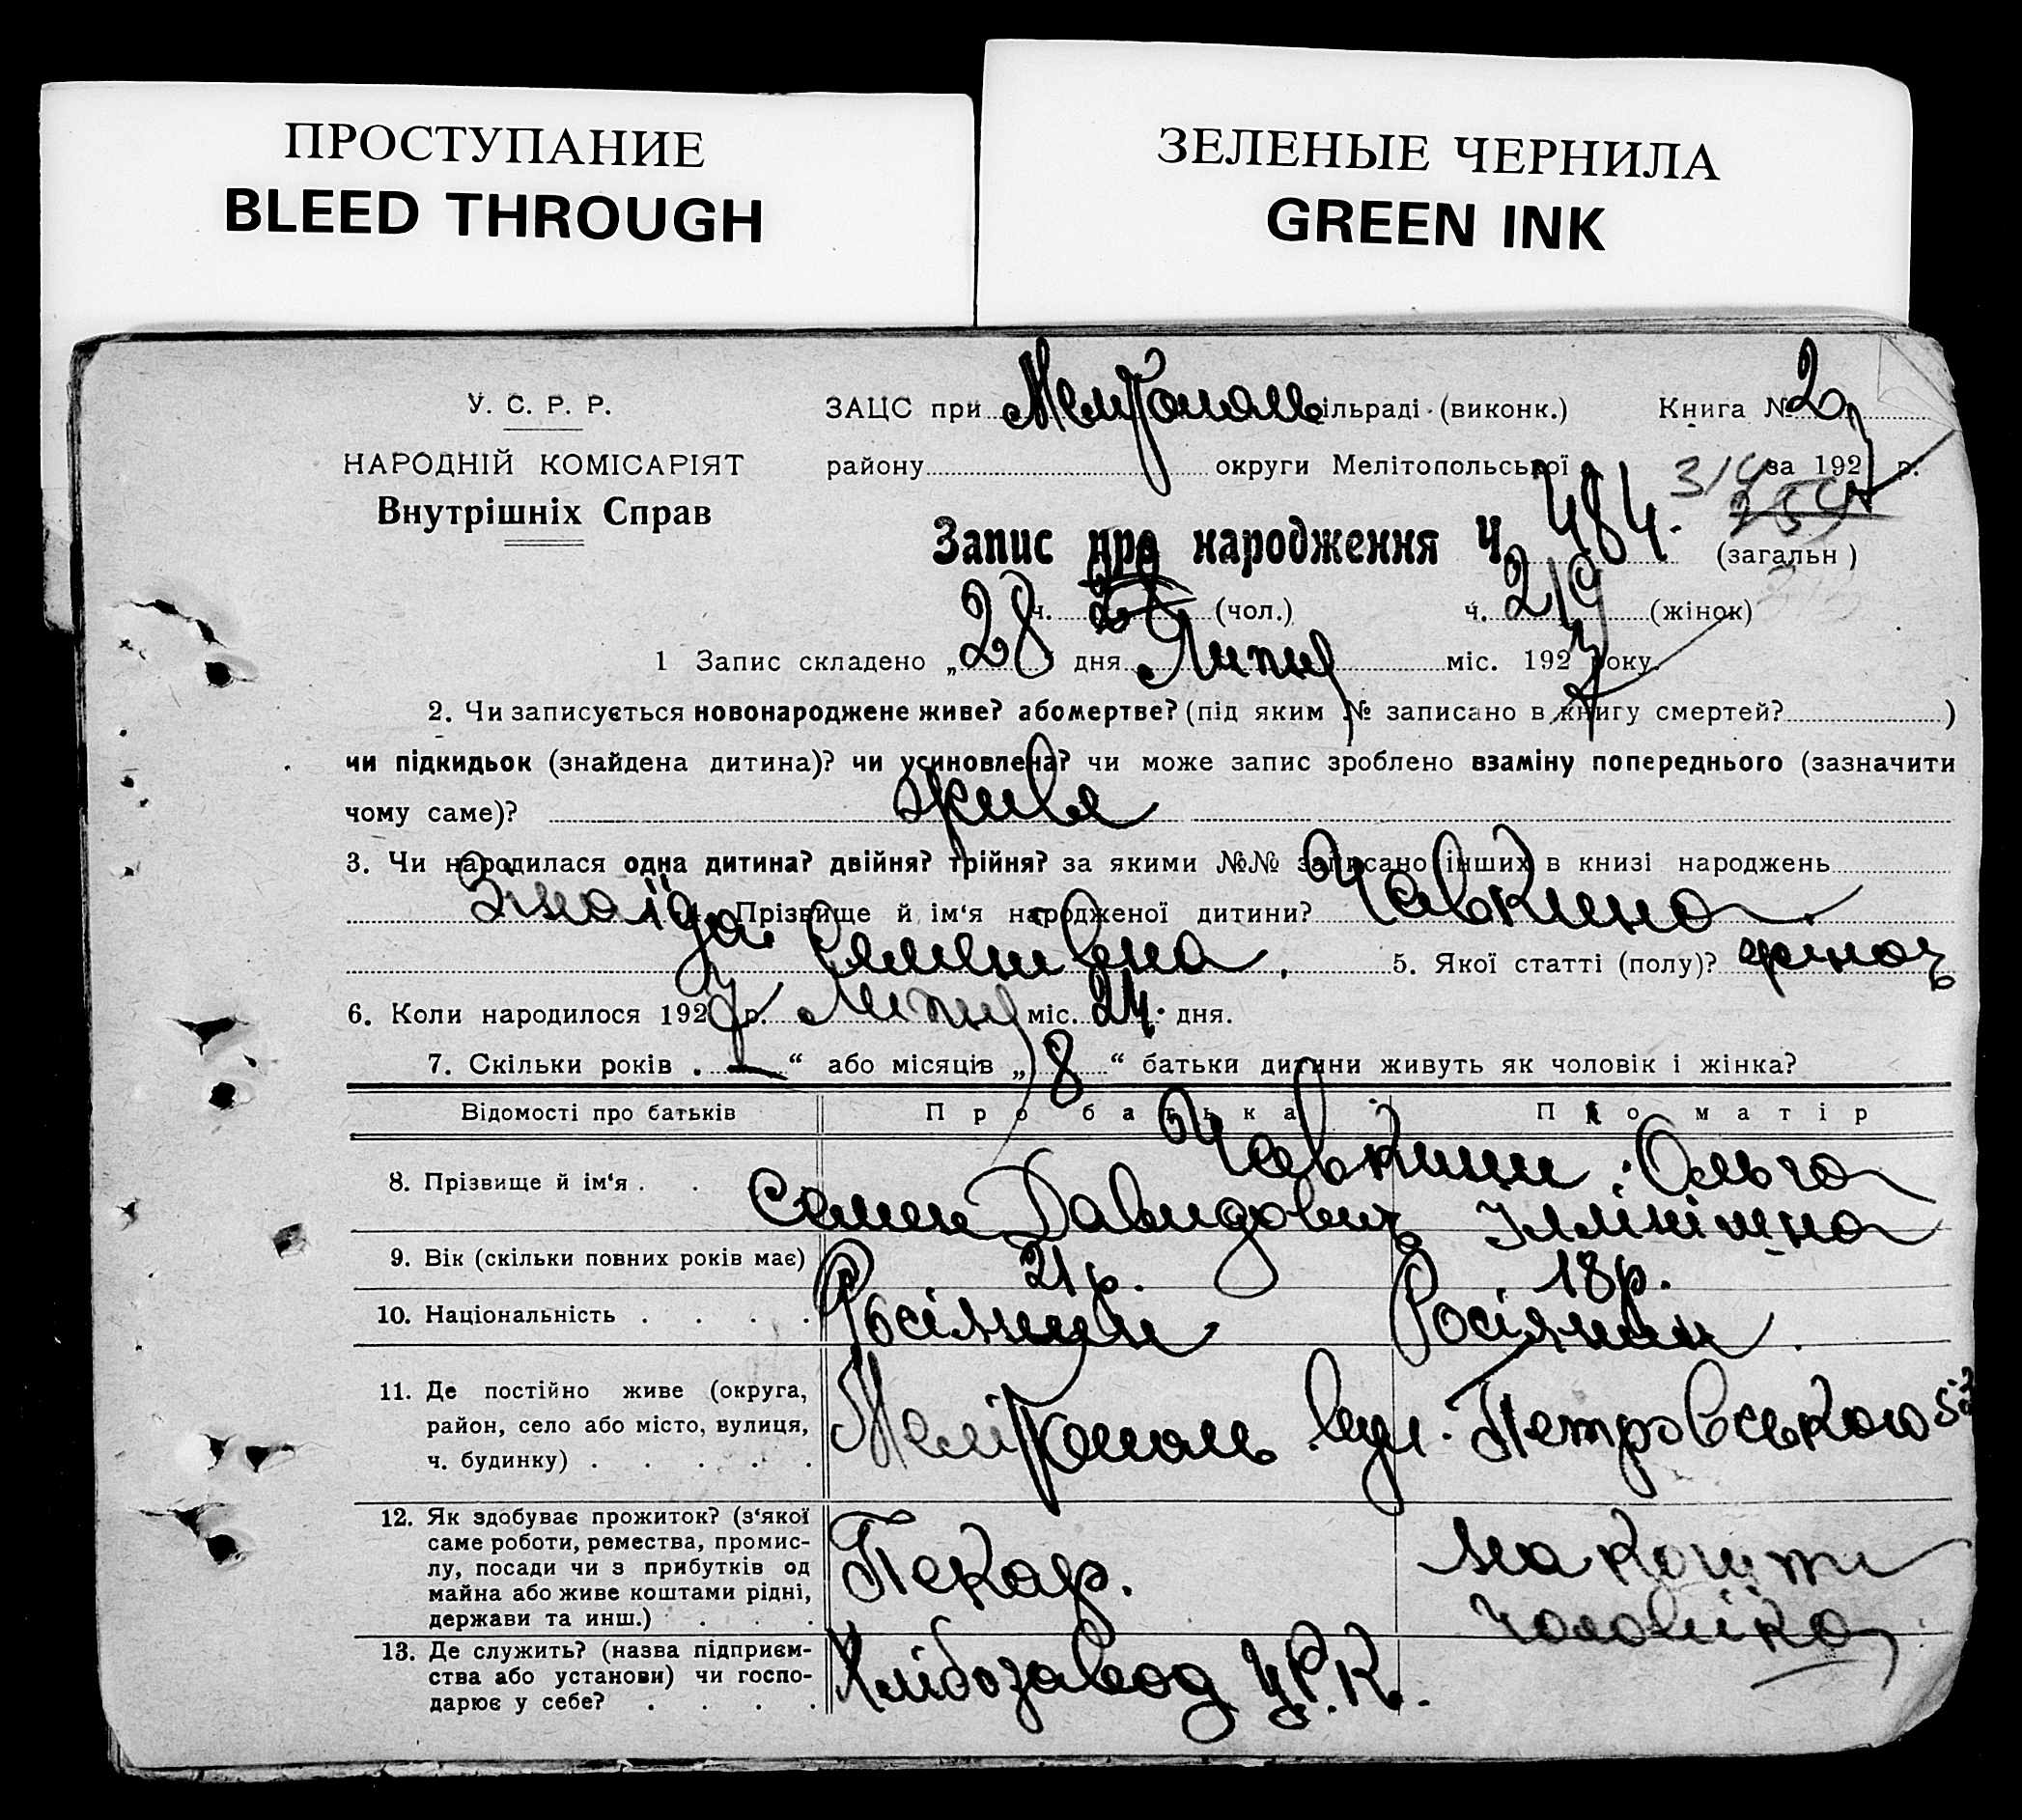 ПРОСТУПАНИЕ
BLEED THROUGH
ЗЕЛЕНЫЕ ЧЕРНИЛА
GREEN INK
У. С. Р. Р.
НАРОДНІЙ КОМІСАРІЯТ
Внутрішніх Справ
ЗАЦС при Мелітополь ільраді (виконк.) Книга № 2
району округи Мелітопольської за 192 р.
314
Запис про народження ч. 484. (загальн)
ч. (чол.) ч. 219 (жінок)
1 Запис складено „28 дня Липня міс. 192 року.
2. Чи записується новонароджене живе? або мертве? (під яким № записано в книгу смертей? )
чи підкидьок (знайдена дитина)? чи усиновлена? чи може запис зроблено взаміну попереднього (зазначити
чому саме)? живе
3. Чи народилася одна дитина? двійня? трійня? за якими №№ записано інших в книзі народжень
Прізвище й ім‘я народженої дитини? Чавкина
Зінаїда Семенівна. 5. Якої статті (полу)? жіноч
6. Коли народилося 192 р. Липня міс. 24. дня.
7. Скільки років . — “ або місяців „ 8 “ батьки дитини живуть як чоловік і жінка?
Відомості про батьків Про батька Про матір
8. Прізвище й ім‘я . . Чавкини: Ольга
Семен Давидович Іллінішна
9. Вік (скільки повних років має) 21 р. 18 р.
10. Національність . . . . Росіянин Росіянин.
11. Де постійно живе (округа,
район, село або місто, вулиця,
ч. будинку) . . . . .
Мелітополь вул. Петровського
12. Як здобуває прожиток? (з‘якої
саме роботи, ремества, промис-
лу, посади чи з прибутків од
майна або живе коштами рідні,
держави та инш.) . . .
Пекар. на кошти
чоловіка
13. Де служить? (назва підприєм-
ства або установи) чи госпо-
дарює у себе? . . . .
Хлібозавод Ц.Р.К.